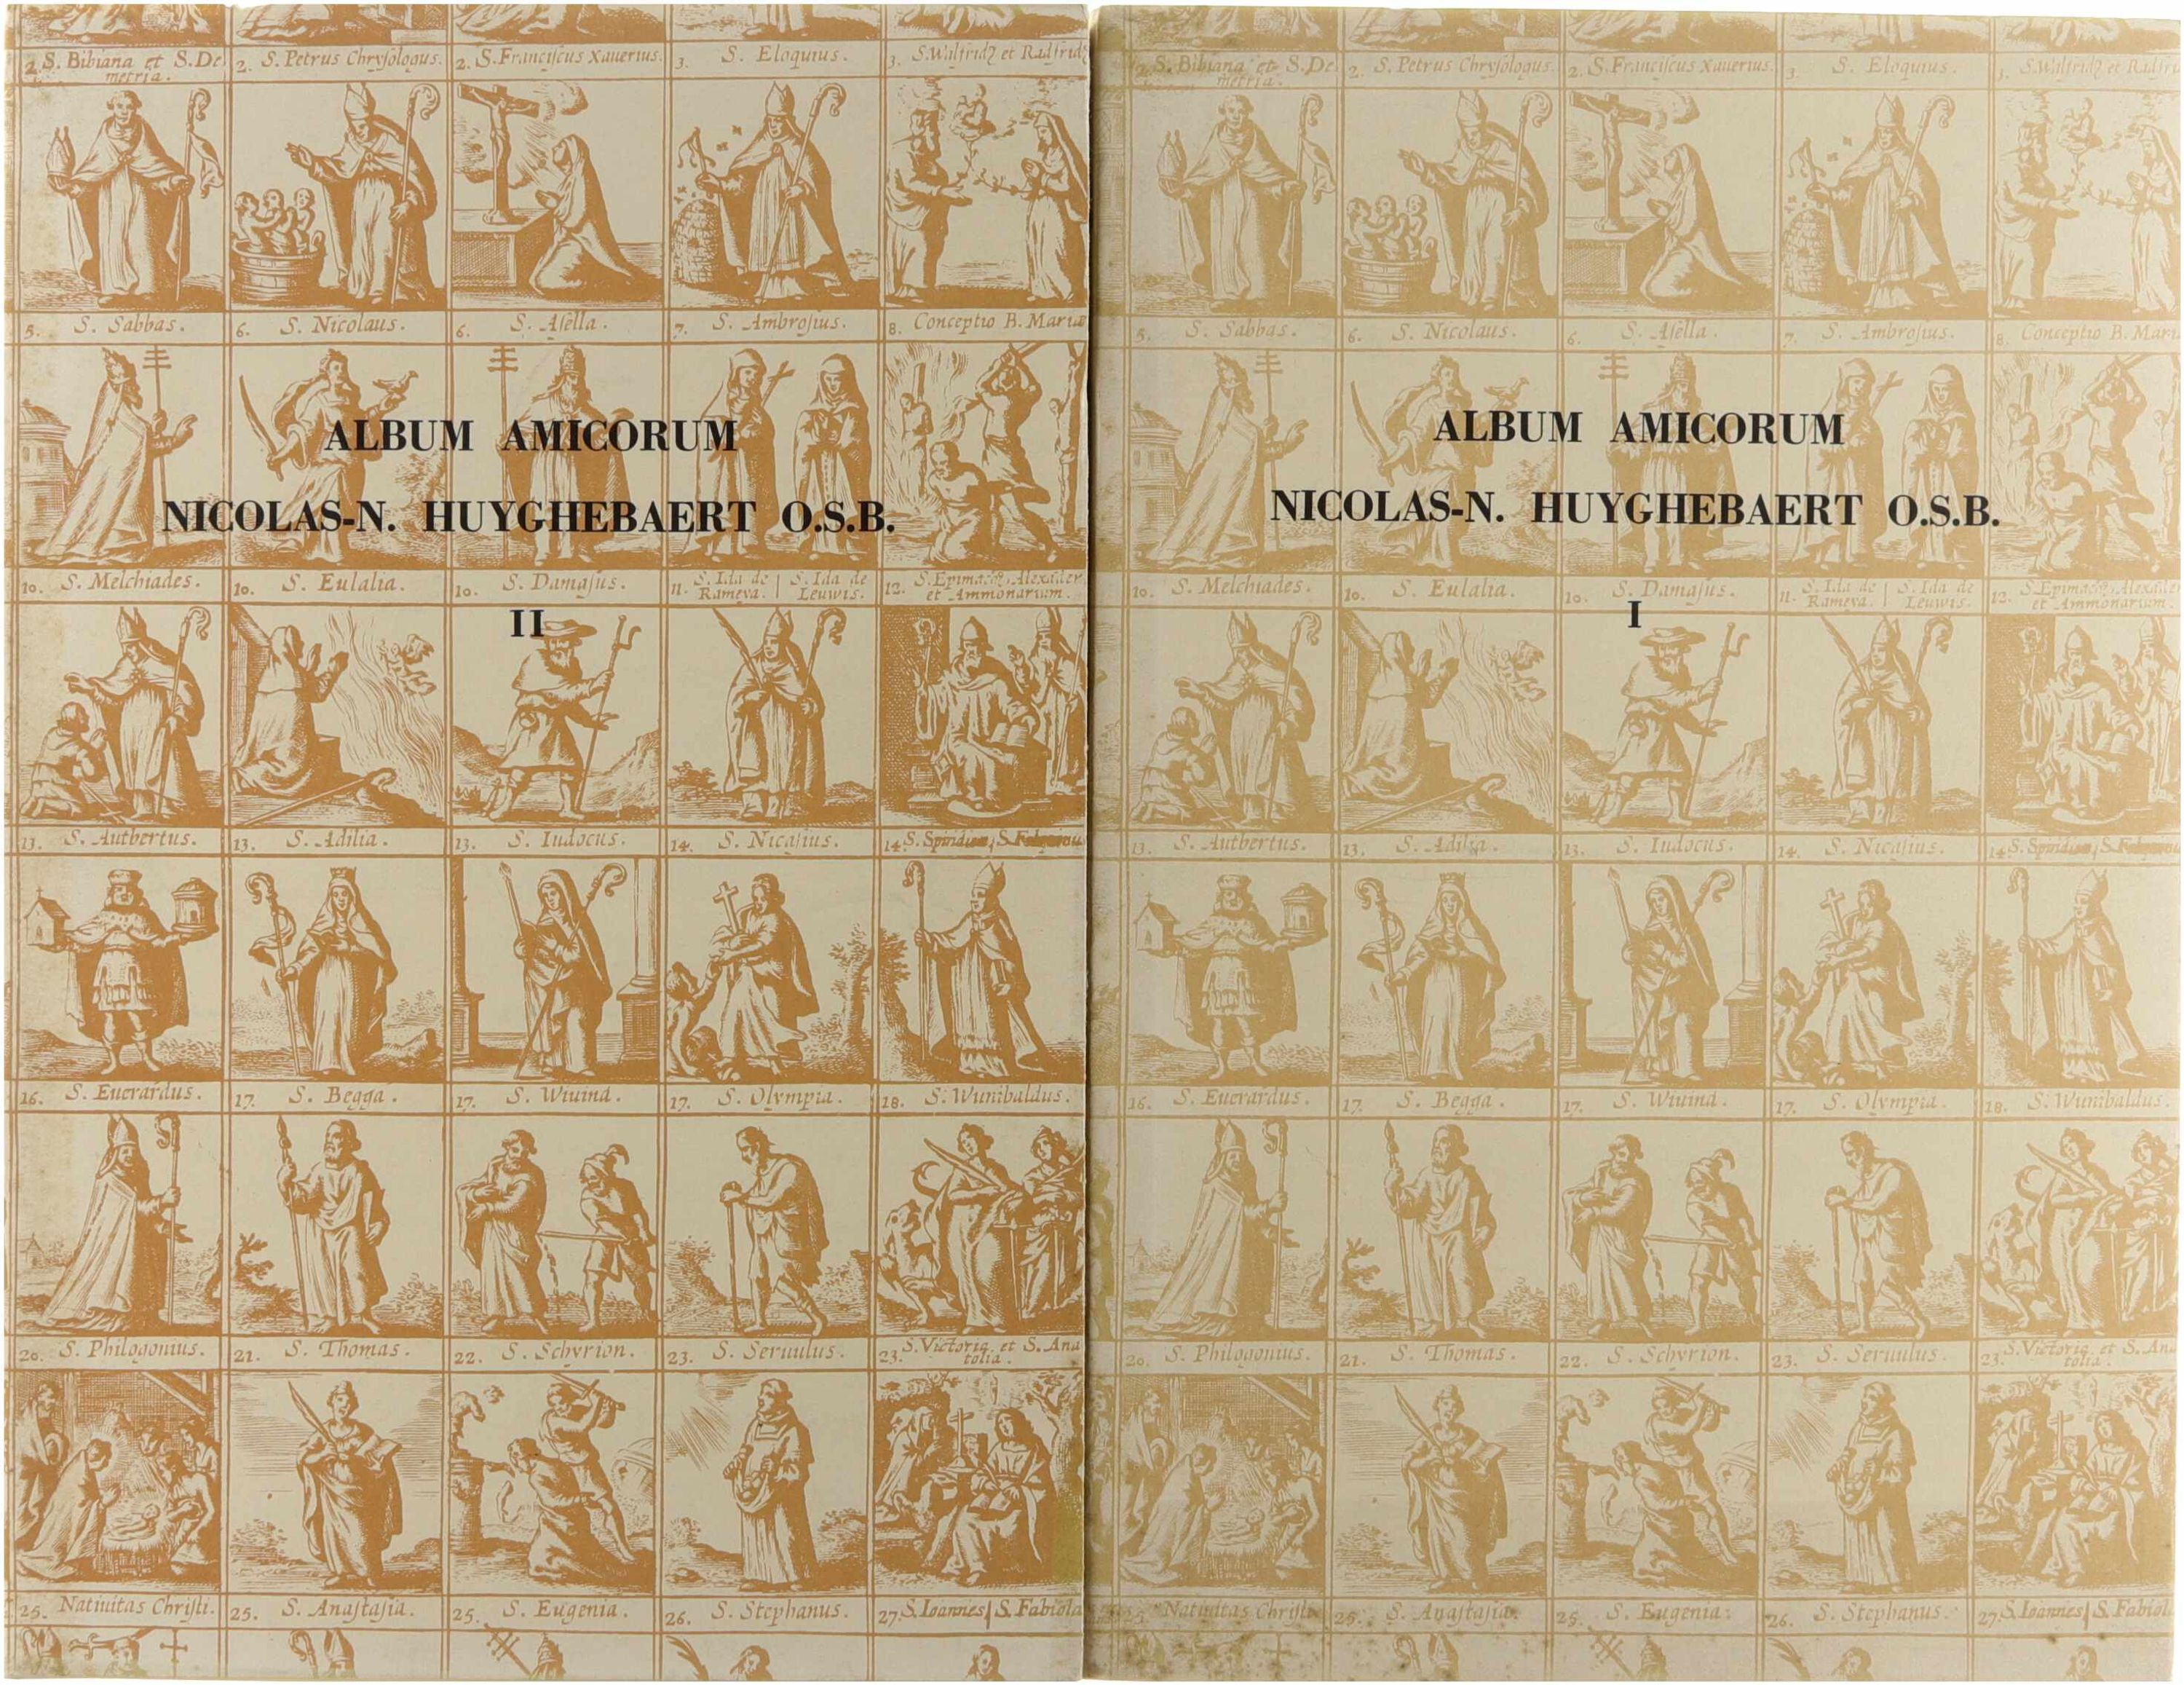 2. S. Bibiana et S. De
metria.
2. S. Petrus Chrysologus.
2. S. Franciscus Xauerius.
3. S. Eloquius.
3. S. Wilfridꝰ et Radfridꝰ
5. S. Sabbas.
6. S. Nicolaus.
6. S. Asella.
7. S. Ambrosius.
8. Conceptio B. Mariæ
ALBUM AMICORUM
NICOLAS-N. HUYGHEBAERT O.S.B.
10. S. Melchiades.
10. S. Eulalia.
10. S. Damasus.
11. S. Ida de Rameya. | S. Ida de Leuwis.
12. S. Epimachꝰ, Alexāder,
et Ammonarium.
II
13. S. Autbertus.
13. S. Adilia.
13. S. Iudocus.
14. S. Nicasius.
14. S. Spiridion, S.
16. S. Euerardus.
17. S. Begga.
17. S. Wiuina.
17. S. Olympia.
18. S. Wunibaldus.
20. S. Philogonius.
21. S. Thomas.
22. S. Schyrion.
23. S. Seruulus.
23. S. Victoria et S. Ana
tolia.
25. Natiuitas Christi.
25. S. Anastasia.
25. S. Eugenia.
26. S. Stephanus.
27. S. Ioannes | S. Fabiola
2. S. Bibiana et S. De
metria.
2. S. Petrus Chrysologus.
2. S. Franciscus Xauerius.
3. S. Eloquius.
3. S. Wilfridꝰ et Radfri
5. S. Sabbas.
6. S. Nicolaus.
6. S. Asella.
7. S. Ambrosius.
8. Conceptio B. Mari
ALBUM AMICORUM
NICOLAS-N. HUYGHEBAERT O.S.B.
10. S. Melchiades.
10. S. Eulalia.
10. S. Damasus.
11. S. Ida de Rameya. | S. Ida de Leuwis.
12. S. Epimachꝰ, Alexāde
et Ammonarium.
I
13. S. Autbertus.
13. S. Adilia.
13. S. Iudocus.
14. S. Nicasius.
14. S. Spiridion, S.
16. S. Euerardus.
17. S. Begga.
17. S. Wiuina.
17. S. Olympia.
18. S. Wunibaldus.
20. S. Philogonius.
21. S. Thomas.
22. S. Schyrion.
23. S. Seruulus.
23. S. Victoria et S. Ana
tolia.
25. Natiuitas Christi.
25. S. Anastasia.
25. S. Eugenia.
26. S. Stephanus.
27. S. Ioannes | S. Fabiol